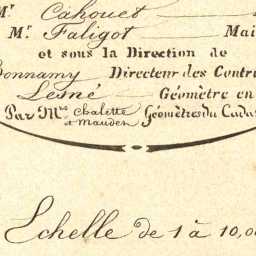 Mr Cahouet
Mr Faligot Mai
et sous la Direction de
Bonnamy Directeur des Contri
Lesné Géomètre en
Par Mrs Chalette et Mauden Géomètres du Cada
Echelle de 1 à 10,00